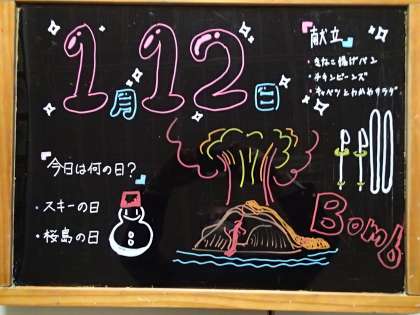 1月12日
献立
・きなこ揚げパン
・チキンビーンズ
・キャベツとわかめサラダ
『今日は何の日?』
・スキーの日
・桜島の日
Bomb